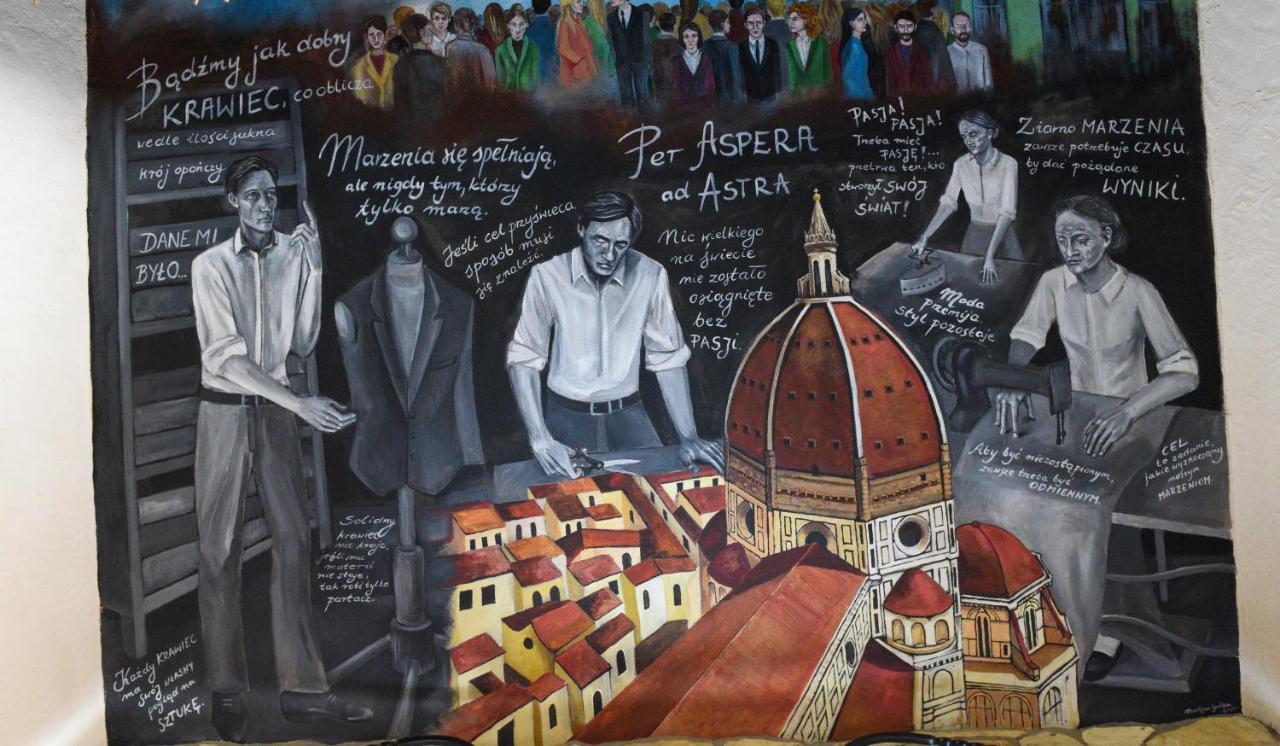 Bądźmy jak dobry
KRAWIEC, co oblicza
wedle ilości sukna
krój opończy
DANE MI
BYŁO...
Marzenia się spełniają,
ale nigdy tym, którzy
tylko marzą.
Jeśli cel przyświeca,
sposób musi
się znaleźć.
Per ASPERA
ad ASTRA
Nic wielkiego
na świecie
nie zostało
osiągnięte
bez
PASJI.
PASJA!
PASJA!
Trzeba mieć
PASJĘ!...
przetrwa ten, kto
stworzył SWÓJ
ŚWIAT!
Ziarno MARZENIA
zawsze potrzebuje CZASU,
by dać pożądane
WYNIKI.
Moda
przemija
styl pozostaje
Aby być niezastąpionym,
zawsze trzeba być
ODMIENNYM.
CEL
to zadanie,
jakie wyznaczamy
naszym
MARZENIOM.
Solidny
krawiec
nie kraje,
jeśli mu
materii
nie staje,
tak robi tylko
partacz.
Każdy KRAWIEC
ma
swój własny
pogląd na
SZTUKĘ.